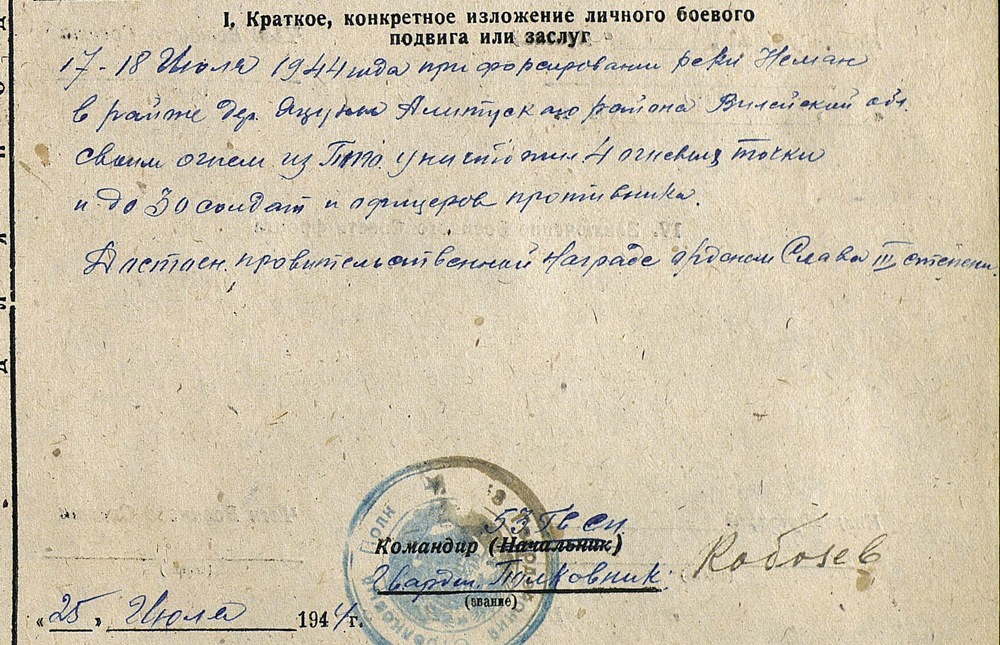 I. Краткое, конкретное изложение личного боевого
подвига или заслуг
17-18 Июля 1944 года при форсировании реки Неман
в районе дер. Яцуны Алитуского района Вилейской обл.
своим огнем из уничтожил 4 огневых точки
и до 30 солдат и офицеров противника.
Достоен провительственной Награде орденом Слава III степени.
53 ГвСП
Командир (Начальник)
Гвардии Полковник Кобозев
(звание)
«25» Июля 1944 г.